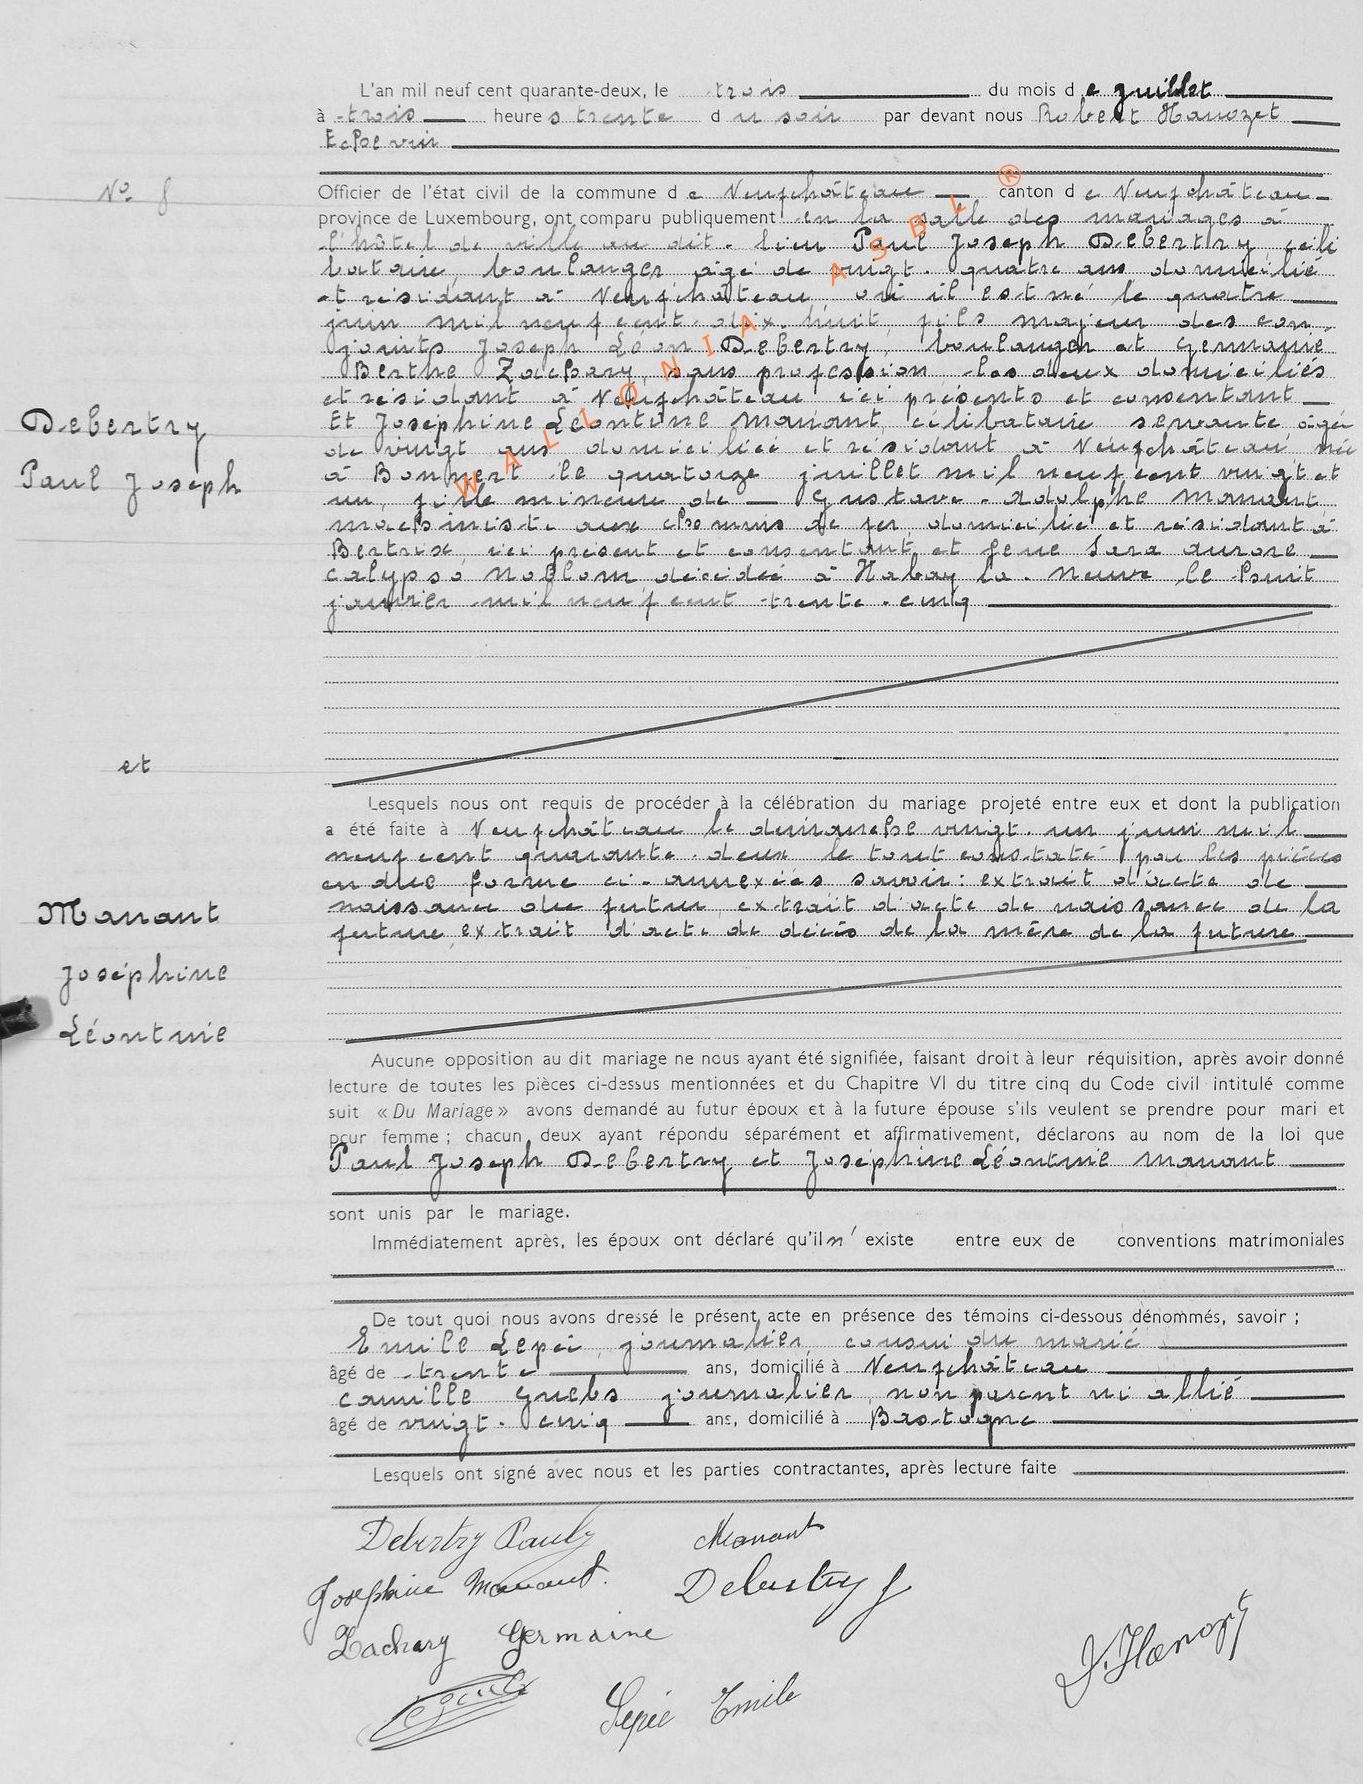 L'an mil neuf cent quarante-deux, le trois du mois de juillet
à trois heures trente du soir par devant nous Robert Hanozet
Echevin
N° 8
Officier de l'état civil de la commune de Neufchâteau canton de Neufchâteau
province de Luxembourg, ont comparu publiquement en la salle des mariages à
l'hôtel de ville au dit-lieu Paul Joseph Debertry, céli
bataire, boulanger âgé de vingt-quatre ans domicilié
et résidant à Neufchâteau, où il est né le quatre
juin mil neuf cent-dix-huit, fils majeur des con-
joints Joseph Léon Debertry, boulanger et Germaine
Berthe Zachary, sans profession, les deux domiciliés
et résidant à Neufchâteau ici présents et consentant
Et Joséphine Léontine Manant, célibataire servante âgée
de vingt ans domiciliée et résidant à Neufchâteau née
à Bonnert le quatorze juillet mil neuf cent vingt et
un, fille mineure de Gustave-Adolphe Manant
machiniste aux chemins de fer, domicilié et résidant à
Bertrix, ici présent et consentant, et feue Sara Aurore
Calypso Noblom décédée à Habay-la-Neuve le huit
janvier mil neuf cent trente-cinq
Debertry
Paul Joseph
et
Manant
Joséphine
Léontine
Lesquels nous ont requis de procéder à la célébration du mariage projeté entre eux et dont la publication
a été faite à Neufchâteau le dimanche vingt-un juin mil
neuf cent quarante-deux le tout constaté par les pièces
en due forme ci-annexées savoir: extrait d'acte de
naissance du futur, extrait d'acte de naissance de la
future, extrait d'acte de décès de la mère de la future
Aucune opposition au dit mariage ne nous ayant été signifiée, faisant droit à leur réquisition, après avoir donné
lecture de toutes les pièces ci-dessus mentionnées et du Chapitre VI du titre cinq du Code civil intitulé comme
suit « Du Mariage » avons demandé au futur époux et à la future épouse s'ils veulent se prendre pour mari et
pour femme ; chacun deux ayant répondu séparément et affirmativement, déclarons au nom de la loi que
Paul Joseph Debertry et Joséphine Léontine Manant
sont unis par le mariage.
Immédiatement après, les époux ont déclaré qu'il n'existe entre eux de conventions matrimoniales
De tout quoi nous avons dressé le présent acte en présence des témoins ci-dessous dénommés, savoir ;
Emile Lepée, journalier, cousin du marié
âgé de trente ans, domicilié à Neufchâteau
Camille Guebs journalier, non parent ni allié
âgé de vingt-cinq ans, domicilié à Bastogne
Lesquels ont signé avec nous et les parties contractantes, après lecture faite
Debertry Paul Manant
Josephine Manant. Debertry J
Zachary Germaine
Lepée Emile
WALLONIA ASBL ®